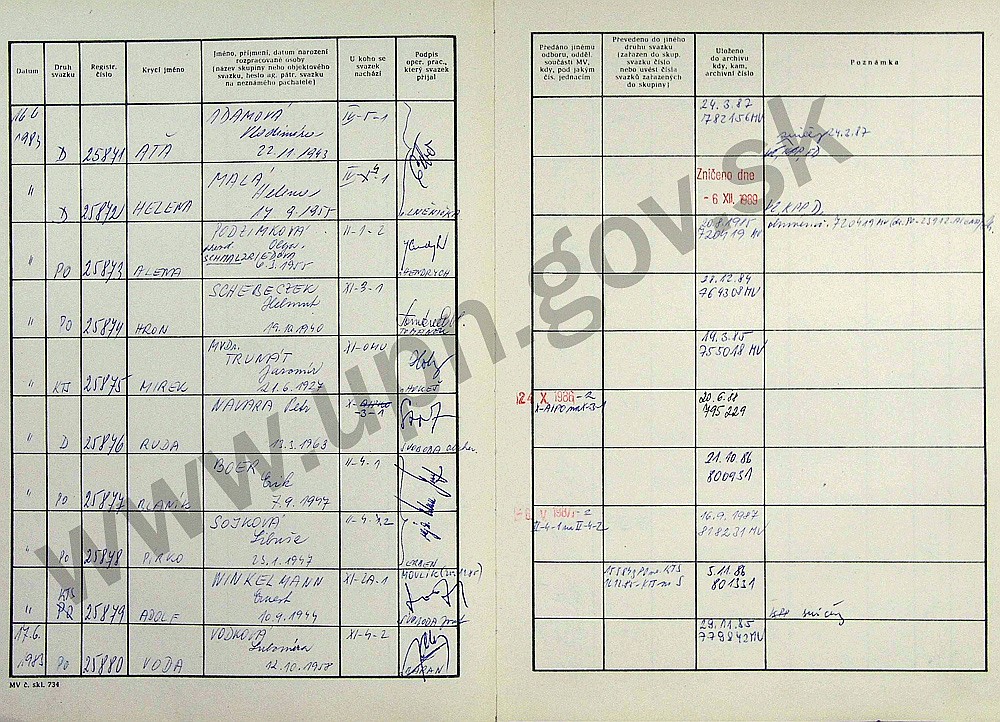 Datum
Druh
svazku
Registr.
číslo
Krycí jméno
Jméno, příjmení, datum narození
rozpracované osoby
(název skupiny nebo objektového
svazku, heslo ag. pátr. svazku
na neznámého pachatele)
U koho se
svazek
nachází
Podpis
oper. prac.,
který svazek
přijal
Předáno jinému
odboru, odděl.
součásti MV,
kdy, pod jakým
čís. jednacím
Převedeno do jiného
druhu svazku
(zařazen do skup.
svazku číslo
nebo uvést čísla
svazků zařazených
do skupiny)
Uloženo
do archivu
kdy, kam,
archivní číslo
Poznámka
16.6.
1983
D 25871 AŤA
ADAMOVÁ
Vladimíra
22.11.1943
IV-5-1
24.3.87
782156 MV
24.2.87
" D 25872 HELENA
MALÁ
Helena
14.9.1955
Zničeno dne
- 6 XII. 1989
" PO 25873 ALENA
PODZIMKOVÁ
Olga
SCHMALZRIEDOVÁ
6.3.1955
II-1-2
JENDRYCH
720419 MV
" PO 25874 HRON
SCHEBESZEK
Helmut
19.10.1940
XI-3-1
TOMÁNEK
764308 MV
" KTS 25875 MIREK
MVDr.
TRUNÁT
Jaromír
21.6.1927
XI-OMV
19.3.85
755018 MV
" D 25876 RUDA
NAVARA Petr
13.3.1963
-3-1
SVOBODA
24 X. 1986 -2
20.6.88
795229
" PO 25877 BLANÍK
BOER
Erik
7.9.1947
II-4-1
21.10.86
800951
" PO 25878 PIRKO
SOJKOVÁ
Libuše
25.1.1947
II-4-2
ERBEN
II-4-1 na II-4-2
16.9.1987
818231 MV
KTS
" PO 25879 ADOLF
WINKELMANN
Ernest
10.9.1944
XI-2A-1
SVOBODA
5.11.86
801331
17.6.
1983 PO 25880 VODA
VODKOVÁ
Lubomíra
12.10.1958
XI-4-2
BARAN
29.11.85
779842 MV
MV č. skl. 734
www.upn.gov.sk